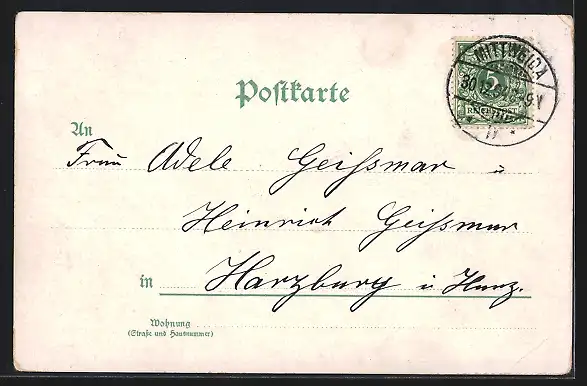 Postkarte
MITTWEIDA
5
REICHSPOST
An
Frau Adele Geissmar u
Heinrich Geissmar
in Harzburg i Harz.
Wohnung
(Straße und Hausnummer)